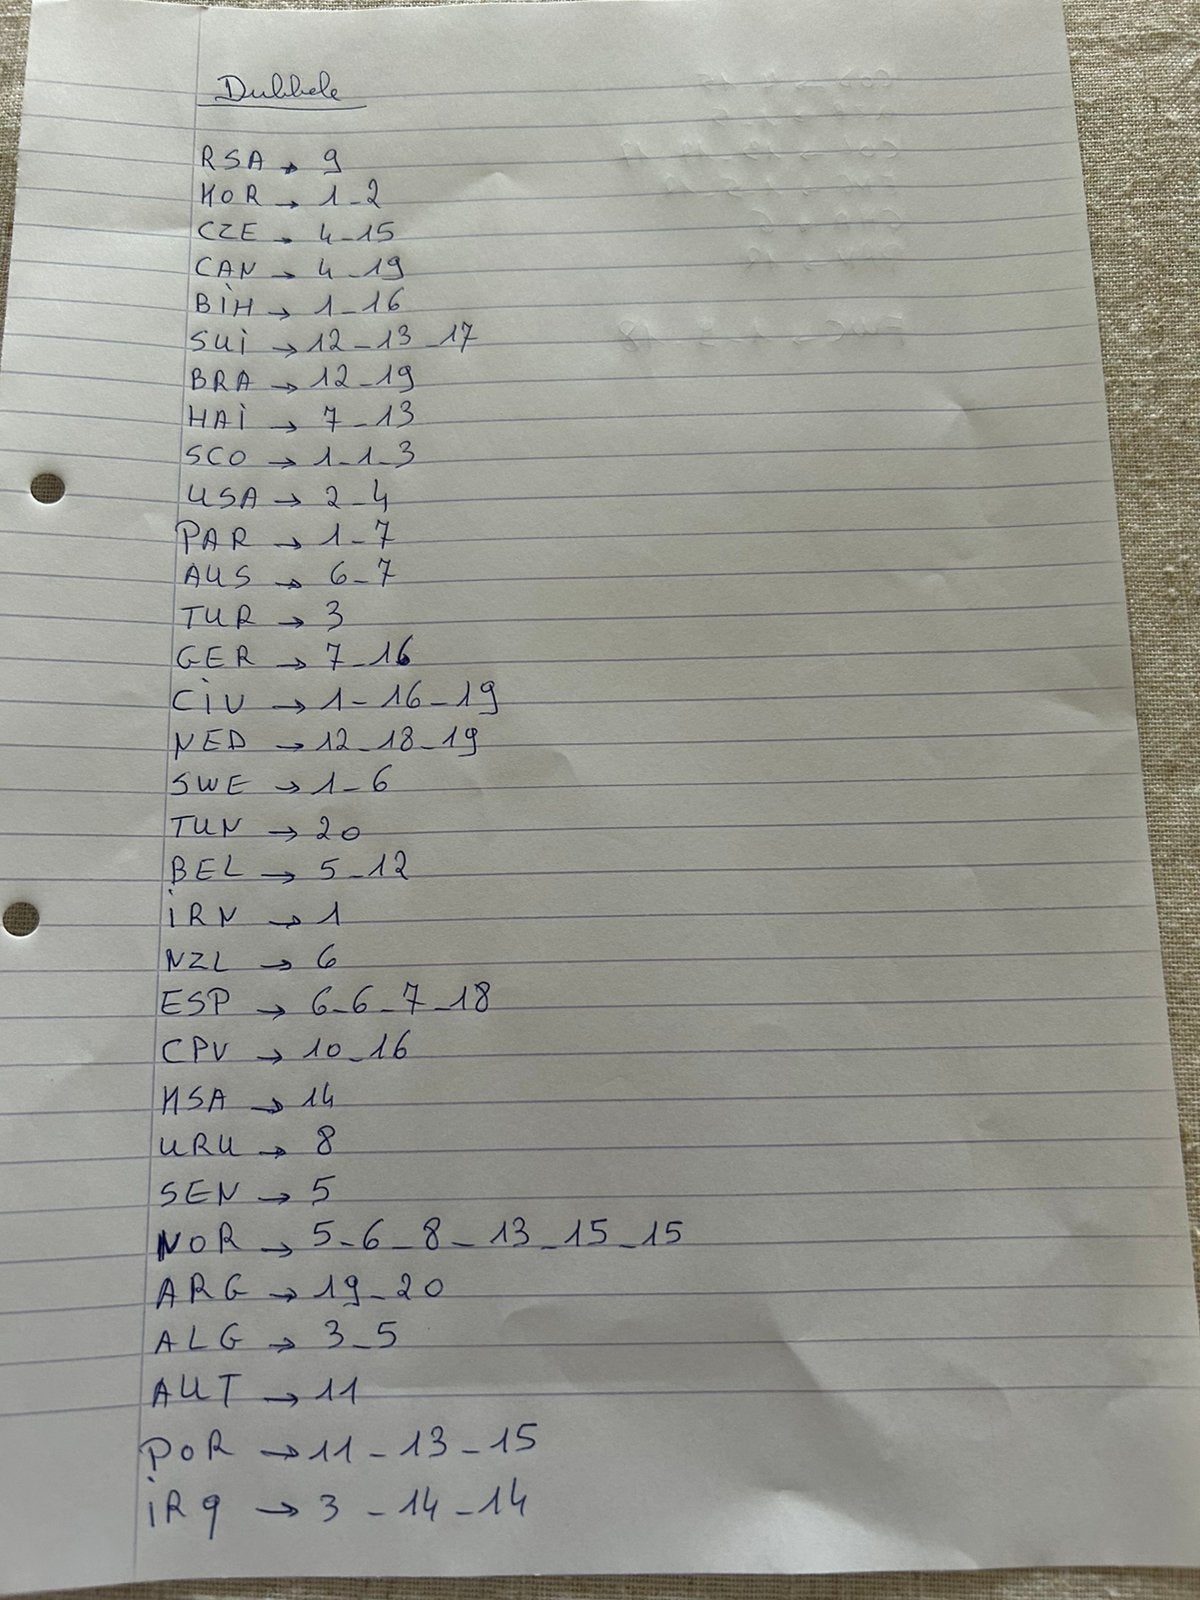 Dubbele
RSA → 9
KOR → 1-2
CZE → 4-15
CAN → 4-19
BIH → 1-16
SUI → 12-13-17
BRA → 12-19
HAI → 7-13
SCO → 1-1-3
USA → 2-4
PAR → 1-7
AUS → 6-7
TUR → 3
GER → 7-16
CIV → 1-16-19
NED → 12-18-19
SWE → 1-6
TUN → 20
BEL → 5-12
IRN → 1
NZL → 6
ESP → 6-6-7-18
CPV → 10-16
KSA → 14
URU → 8
SEN → 5
NOR → 5-6-8-13-15-15
ARG → 19-20
ALG → 3-5
AUT → 11
POR → 11-13-15
IRq → 3-14-14